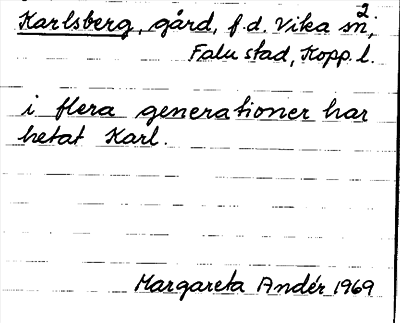 Karlsberg, gård, f.d. Vika sn,
2
Falu stad, Kopp. l.
i flera generationer har
hetat Karl.
Margareta Andér 1969